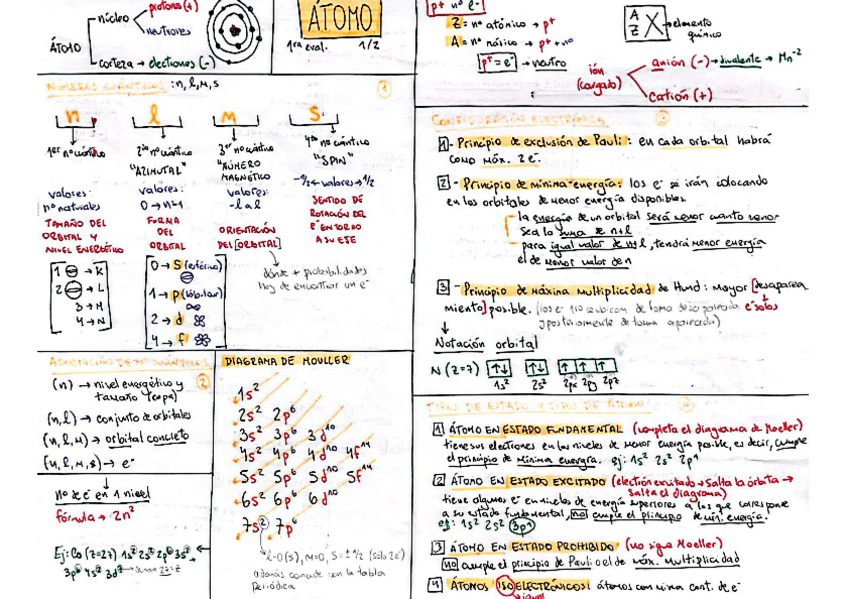 ÁTOMO
núcleo
protones (+)
neutrones
corteza → electrones (-)
ÁTOMO
1ra eval. 1/2
p+ n0 e-
Z = nº atónico → p+
A = nº másico → p+ + nº
p+ = e- → neutro
A
Z X → elemento
químico
ión
(cargado)
anión (-) → divalente → Mn-2
catión (+)
NÚMEROS CUÁNTICOS: n, l, m, s
1
n
1er nº cuántico
valores:
nº naturales
TAMAÑO DEL
ORBITAL Y
NIVEL ENERGÉTICO
1 → K
2 → L
3 → M
4 → N
l
2do nº cuántico
"AZIMUTAL"
valores:
0 → n-1
FORMA
DEL
ORBITAL
0 → s (esférico)
1 → p (bilobular)
2 → d
4 → f
m
3er nº cuántico
"NÚMERO
MAGNÉTICO"
valores:
-l a l
ORIENTACIÓN
DEL [ORBITAL]
dónde + probabilidades
hay de encontrar un e-
s
4to nº cuántico
"SPIN"
-1/2 ← valores → 1/2
SENTIDO DE
ROTACIÓN DEL
e- EN TORNO
A SU EJE
CONFIGURACIÓN ELECTRÓNICA
1 - Principio de exclusión de Pauli: en cada orbital habrá
como máx. 2 e-.
2 - Principio de mínima energía: los e- se irán colocando
en los orbitales de menor energía disponibles
la energía de un orbital será menor cuanto menor
sea la suma de n+l
para igual valor de n+l, tendrá menor energía
el de menor valor de n
3 - Principio de máxima multiplicidad de Hund: mayor [desaparea
miento] posible. (los e- se ubican de forma desapareada e- solos
y posteriormente de forma apareada)
Notación orbital
N (Z=7) ↑↓ ↑↓ ↑ ↑ ↑
1s2 2s2 2px 2py 2pz
ASOCIACIÓN DE Nº CUÁNTICOS
2
(n) → nivel energético y
tamaño (capa)
(n, l) → conjunto de orbitales
(n, l, m) → orbital concreto
(n, l, m, s) → e-
nº de e- en 1 nivel
fórmula → 2n2
Ej: Co (Z=27) 1s2 2s2 2p6 3s2
3p6 4s2 3d7
DIAGRAMA DE MOULLER
1s2
2s2 2p6
3s2 3p6 3d10
4s2 4p6 4d10 4f14
5s2 5p6 5d10 5f14
6s2 6p6 6d10
7s2 7p6
l=0 (s), m=0, s=±1/2 (sólo 2e-)
además coincide con la tabla
periódica
TIPOS DE ESTADO Y TIPOS DE ÁTOMO
1 ÁTOMO EN ESTADO FUNDAMENTAL (completa el diagrama de Moeller)
tiene sus electrones en los niveles de menor energía posible, es decir, cumple
el principio de mínima energía. ej: 1s2 2s2 2p1
2 ÁTOMO EN ESTADO EXCITADO (electrón excitado → salta la órbita →
salta el diagrama)
tiene algunos e- en niveles de energía superiores a los que corresponde
a su estado fundamental, no cumple el principio de mín. energía.
ej: 1s2 2s2 3p1
3 ÁTOMO EN ESTADO PROHIBIDO (no sigue Moeller)
NO cumple el principio de Pauli o el de máx. multiplicidad
4 ÁTOMOS ISOELECTRÓNICOS: átomos con misma cant. de e-
igual